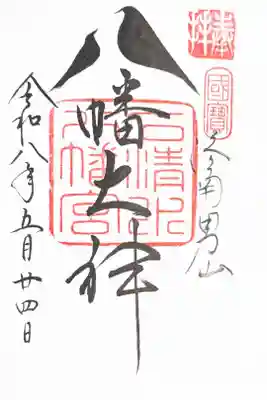 奉拝
國寶
都南男山
石清水八幡宮
八幡大神
令和八年五月廿四日